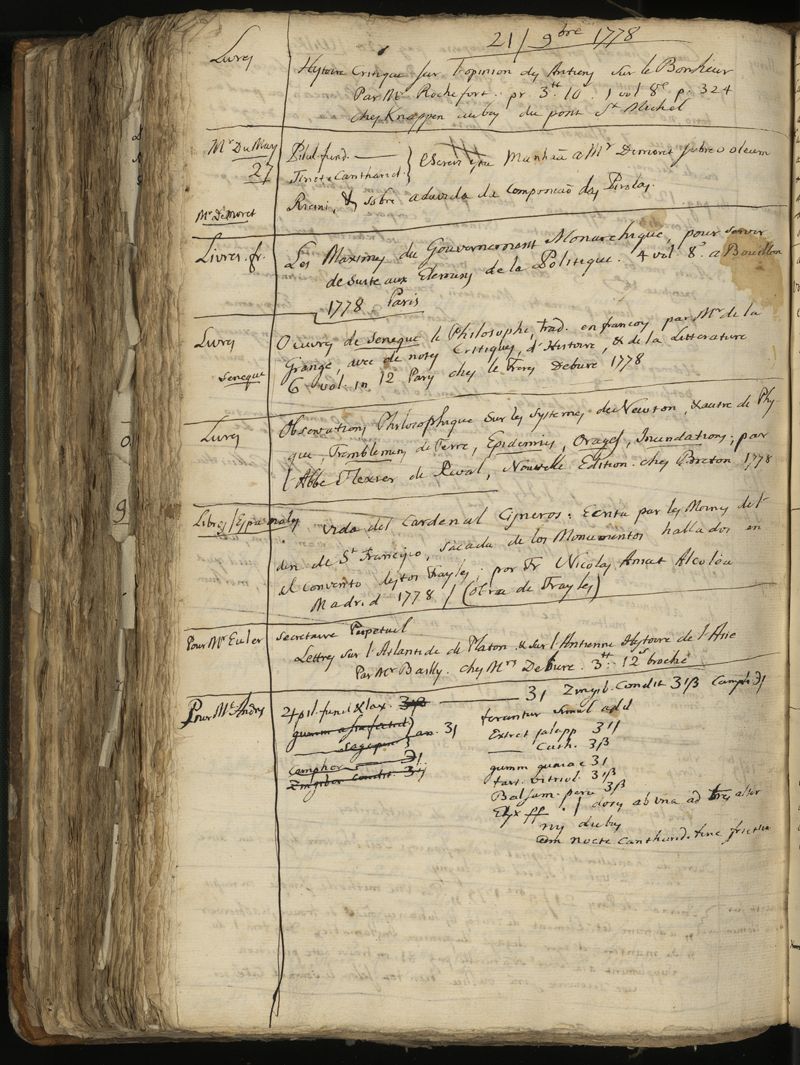 21 / 9bre 1778
Livres
Hystoire Critique sur l'opinion des Antiens sur le Bonheur
Par Mr Rochefort. pr 3tt 10. 1 vol 8e p. 324
ches Knappen au bas du pont St Michel
Mr DuMay
27
Pilul. fund.
Tinct. Cantharid.
Escrivi esta Manhaã a Mr Demoret sobre o oleum
Mr Demoret
Ricini, & sobre a duvida da Composicaõ das Pirolas.
Livres. fr.
Les Maximes du Gouvernement Monarchique, pour servir
de suite aux Elemens de la Politique. 4 vol 8o a Bouillon
1778 Paris
Livres
Oeuvres de Seneque le Philosophe, trad. en françois par Mr de la
Seneque
Grange, avec de notes Critiques, d'Histoire, & de la Litterature
6 vol. in 12 Paris ches le Freres Debure 1778
Livres
Observations Philosophique sur les Systemes de Newton, & autre de Phy
que Tremblemens de Terre, Epidemies, Orages, Inundations, par
l'Abbe Flexier de Reval, Nouvelle Edition. ches Breton 1778
Libros / Espanoles
Vida del Cardenal Cisneros. Escrita por les
den de St Francisco, sacada de los Monumentos hallados en
el Convento destos Frayles. por Fr Nicolas Aniceto Alcolea
Madrid 1778 / (obra de Frayles)
Pour Mr Euler
Secretaire Perpetuel
Lettres sur l'Atlantide de Platon & sur l'Antienne Hystoire de l'Asie
Par Mr Bailly. ches Mrs Debure. 3tt. 12s broché
Pour Mr Andry
pil. fund & lax. ʒi Zingib. Condit ʒiβ Camph
gumm assa foetid
Sagapen aa. ʒi
Camphor
Zingiber Condit
terantur simul add
Extrct jalapp ʒij
Cath. ʒβ
gumm guaiac ʒi
tart. vitriol. ʒiβ
Balsam. peru ʒβ
dosis ab una ad tres alter
nis diebus
nocte Cantharid. tinc. frictio